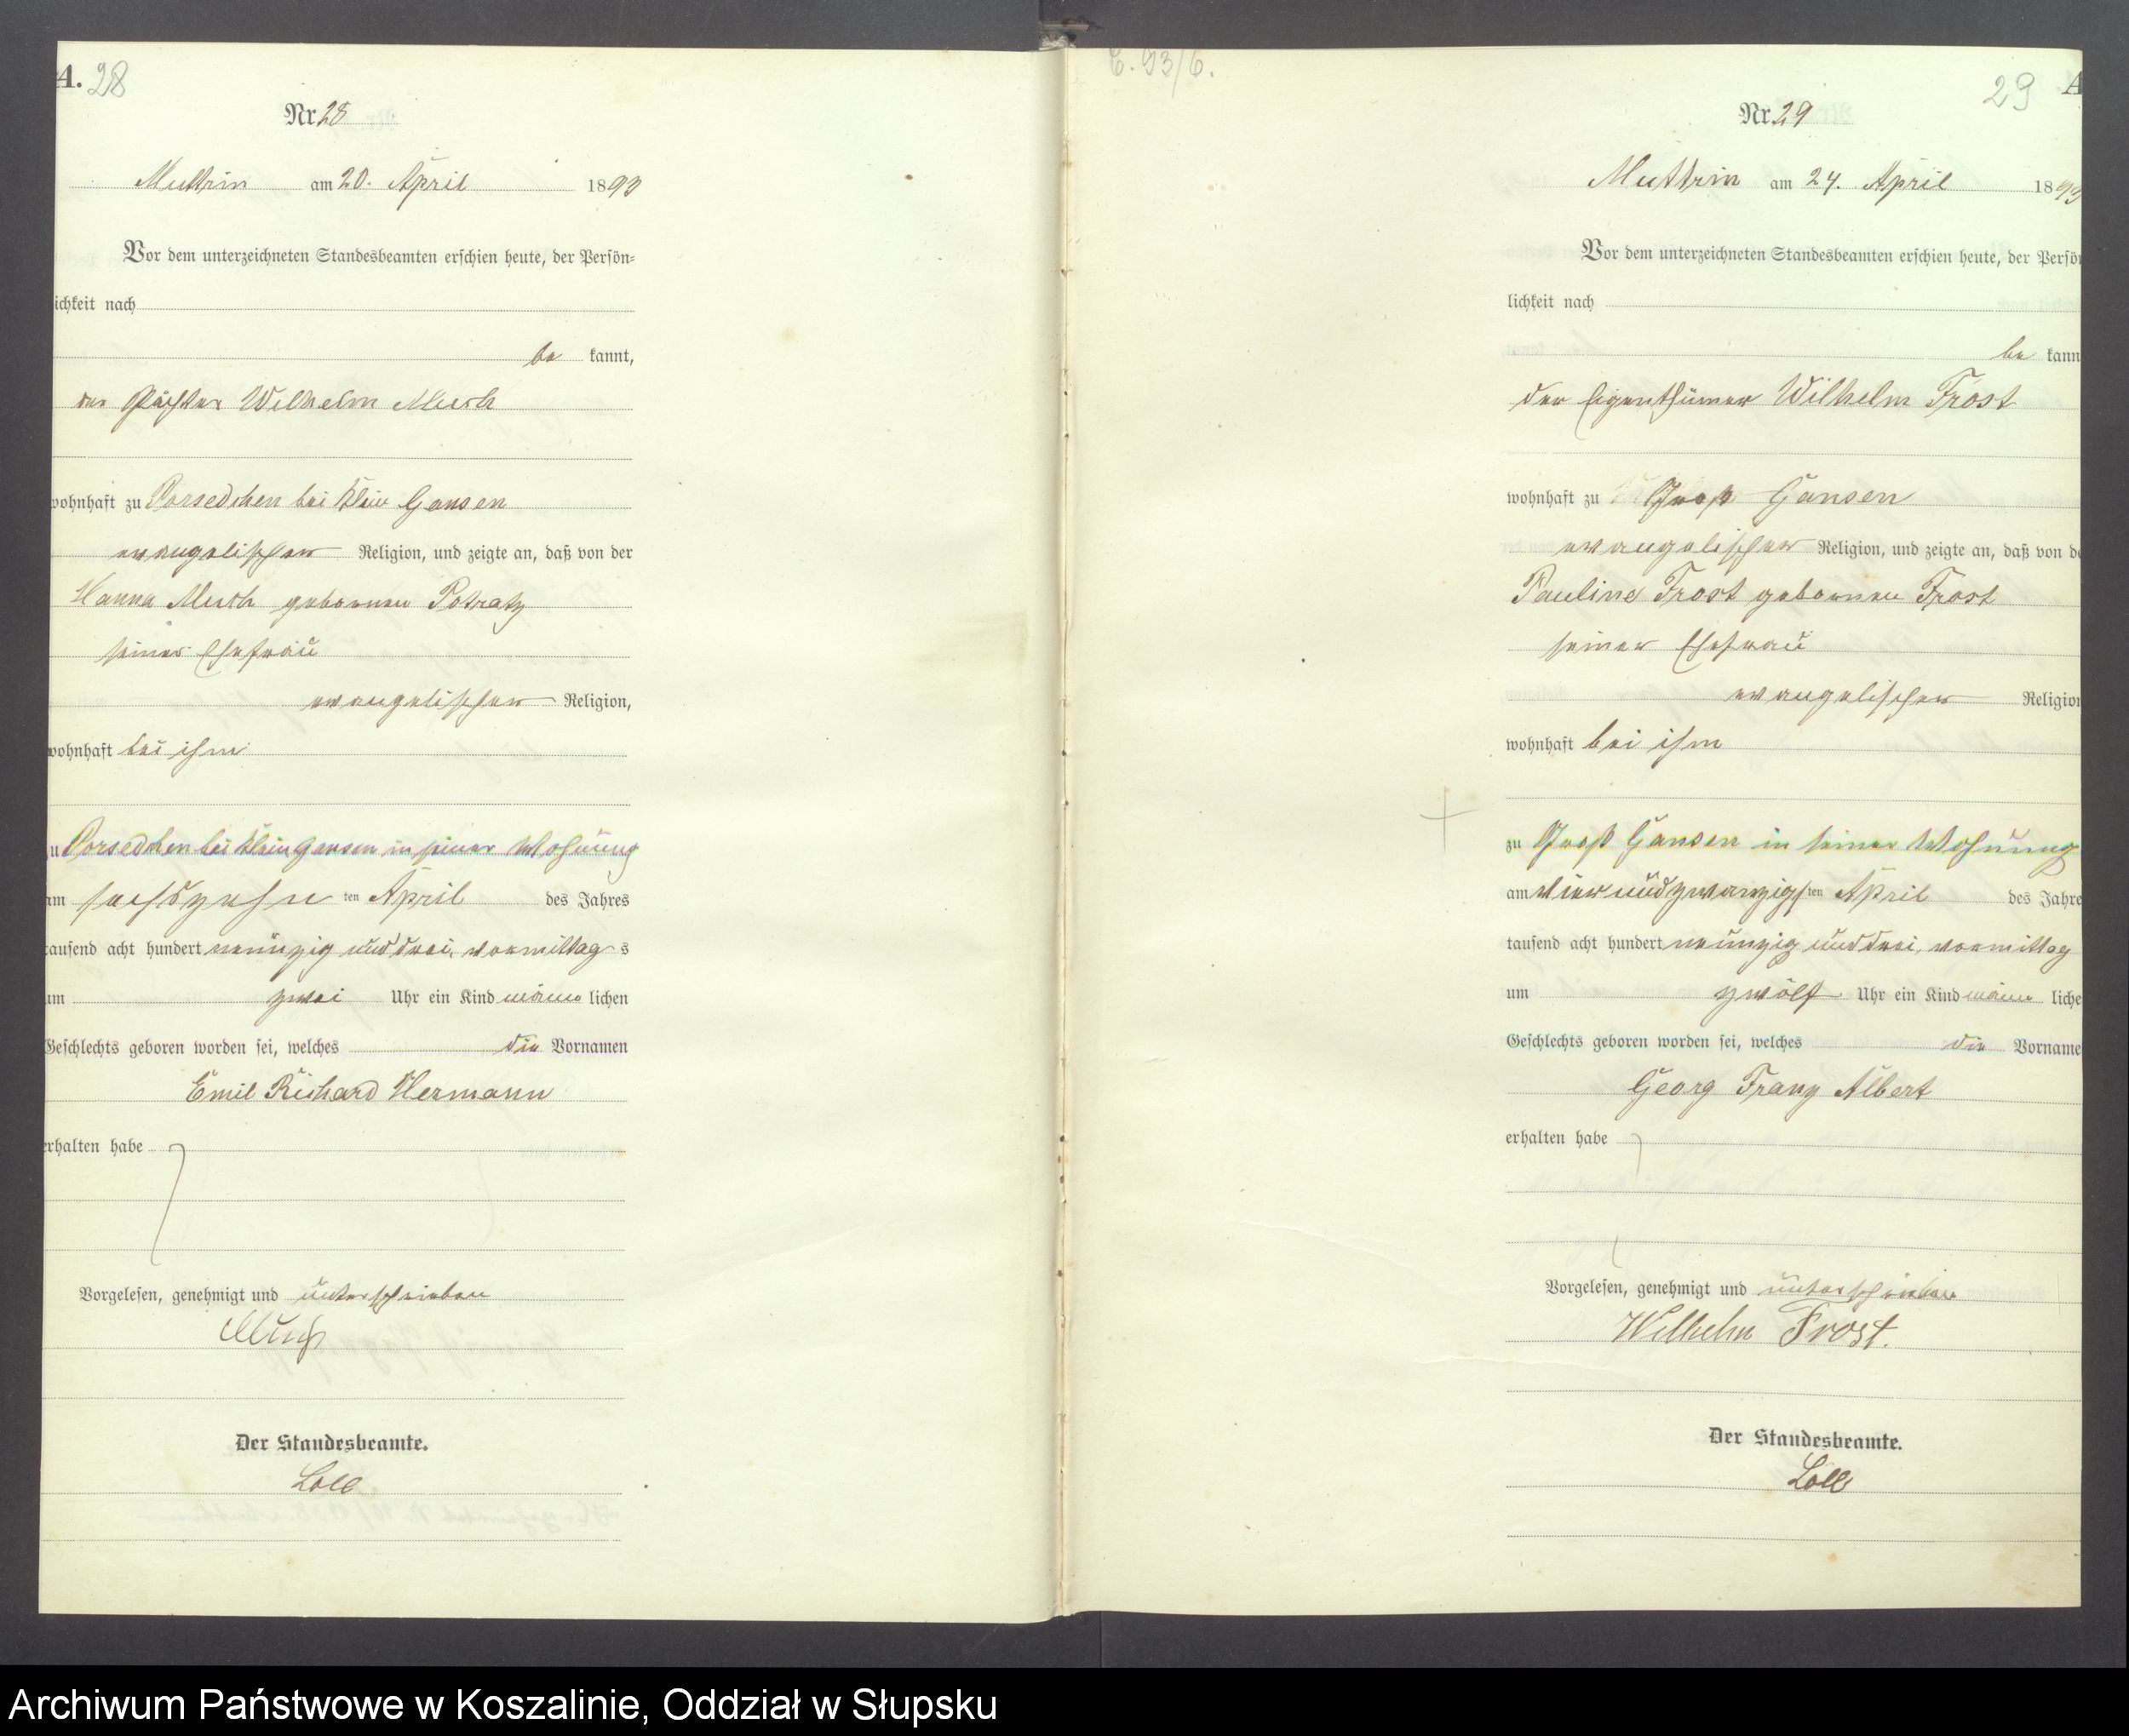 A. 28
Nr 28
Muttrin am 20. April 1893
Vor dem unterzeichneten Standesbeamten erschien heute, der Persön-
lichkeit nach
be kannt,
der Pächter Wilhelm Muth
wohnhaft zu Porsedchen bei Klein Gansen
evangelischer Religion, und zeigte an, daß von der
Hanna Muth gebornen Potratz
seiner Ehefrau
evangelischer Religion,
wohnhaft bei ihm
zu Porsedchen bei Klein Gansen in seiner Wohnung
am sechszehn ten April des Jahres
tausend acht hundert neunzig und drei, vormittag s
um zwei Uhr ein Kind männ lichen
Geschlechts geboren worden sei, welches die Vornamen
Emil Richard Hermann
erhalten habe
Vorgelesen, genehmigt und unterschrieben
Muth
Der Standesbeamte.
Loll
C. 93/6.
29 A
Nr 29
Muttrin am 24. April 1893
Vor dem unterzeichneten Standesbeamten erschien heute, der Persön
lichkeit nach
be kann
der Eigenthümer Wilhelm Frost
wohnhaft zu Groß Gansen
evangelischer Religion, und zeigte an, daß von de
Pauline Frost gebornen Frost
seiner Ehefrau
evangelischer Religion
wohnhaft bei ihm
zu Groß Gansen in seiner Wohnung
am vierundzwanzigsten April des Jahre
tausend acht hundert neunzig und drei, vormittag
um zwölf Uhr ein Kind männ liche
Geschlechts geboren worden sei, welches die Vorname
Georg Franz Albert
erhalten habe
Vorgelesen, genehmigt und unterschrieben
Wilhelm Frost.
Der Standesbeamte.
Loll
Archiwum Państwowe w Koszalinie, Oddział w Słupsku